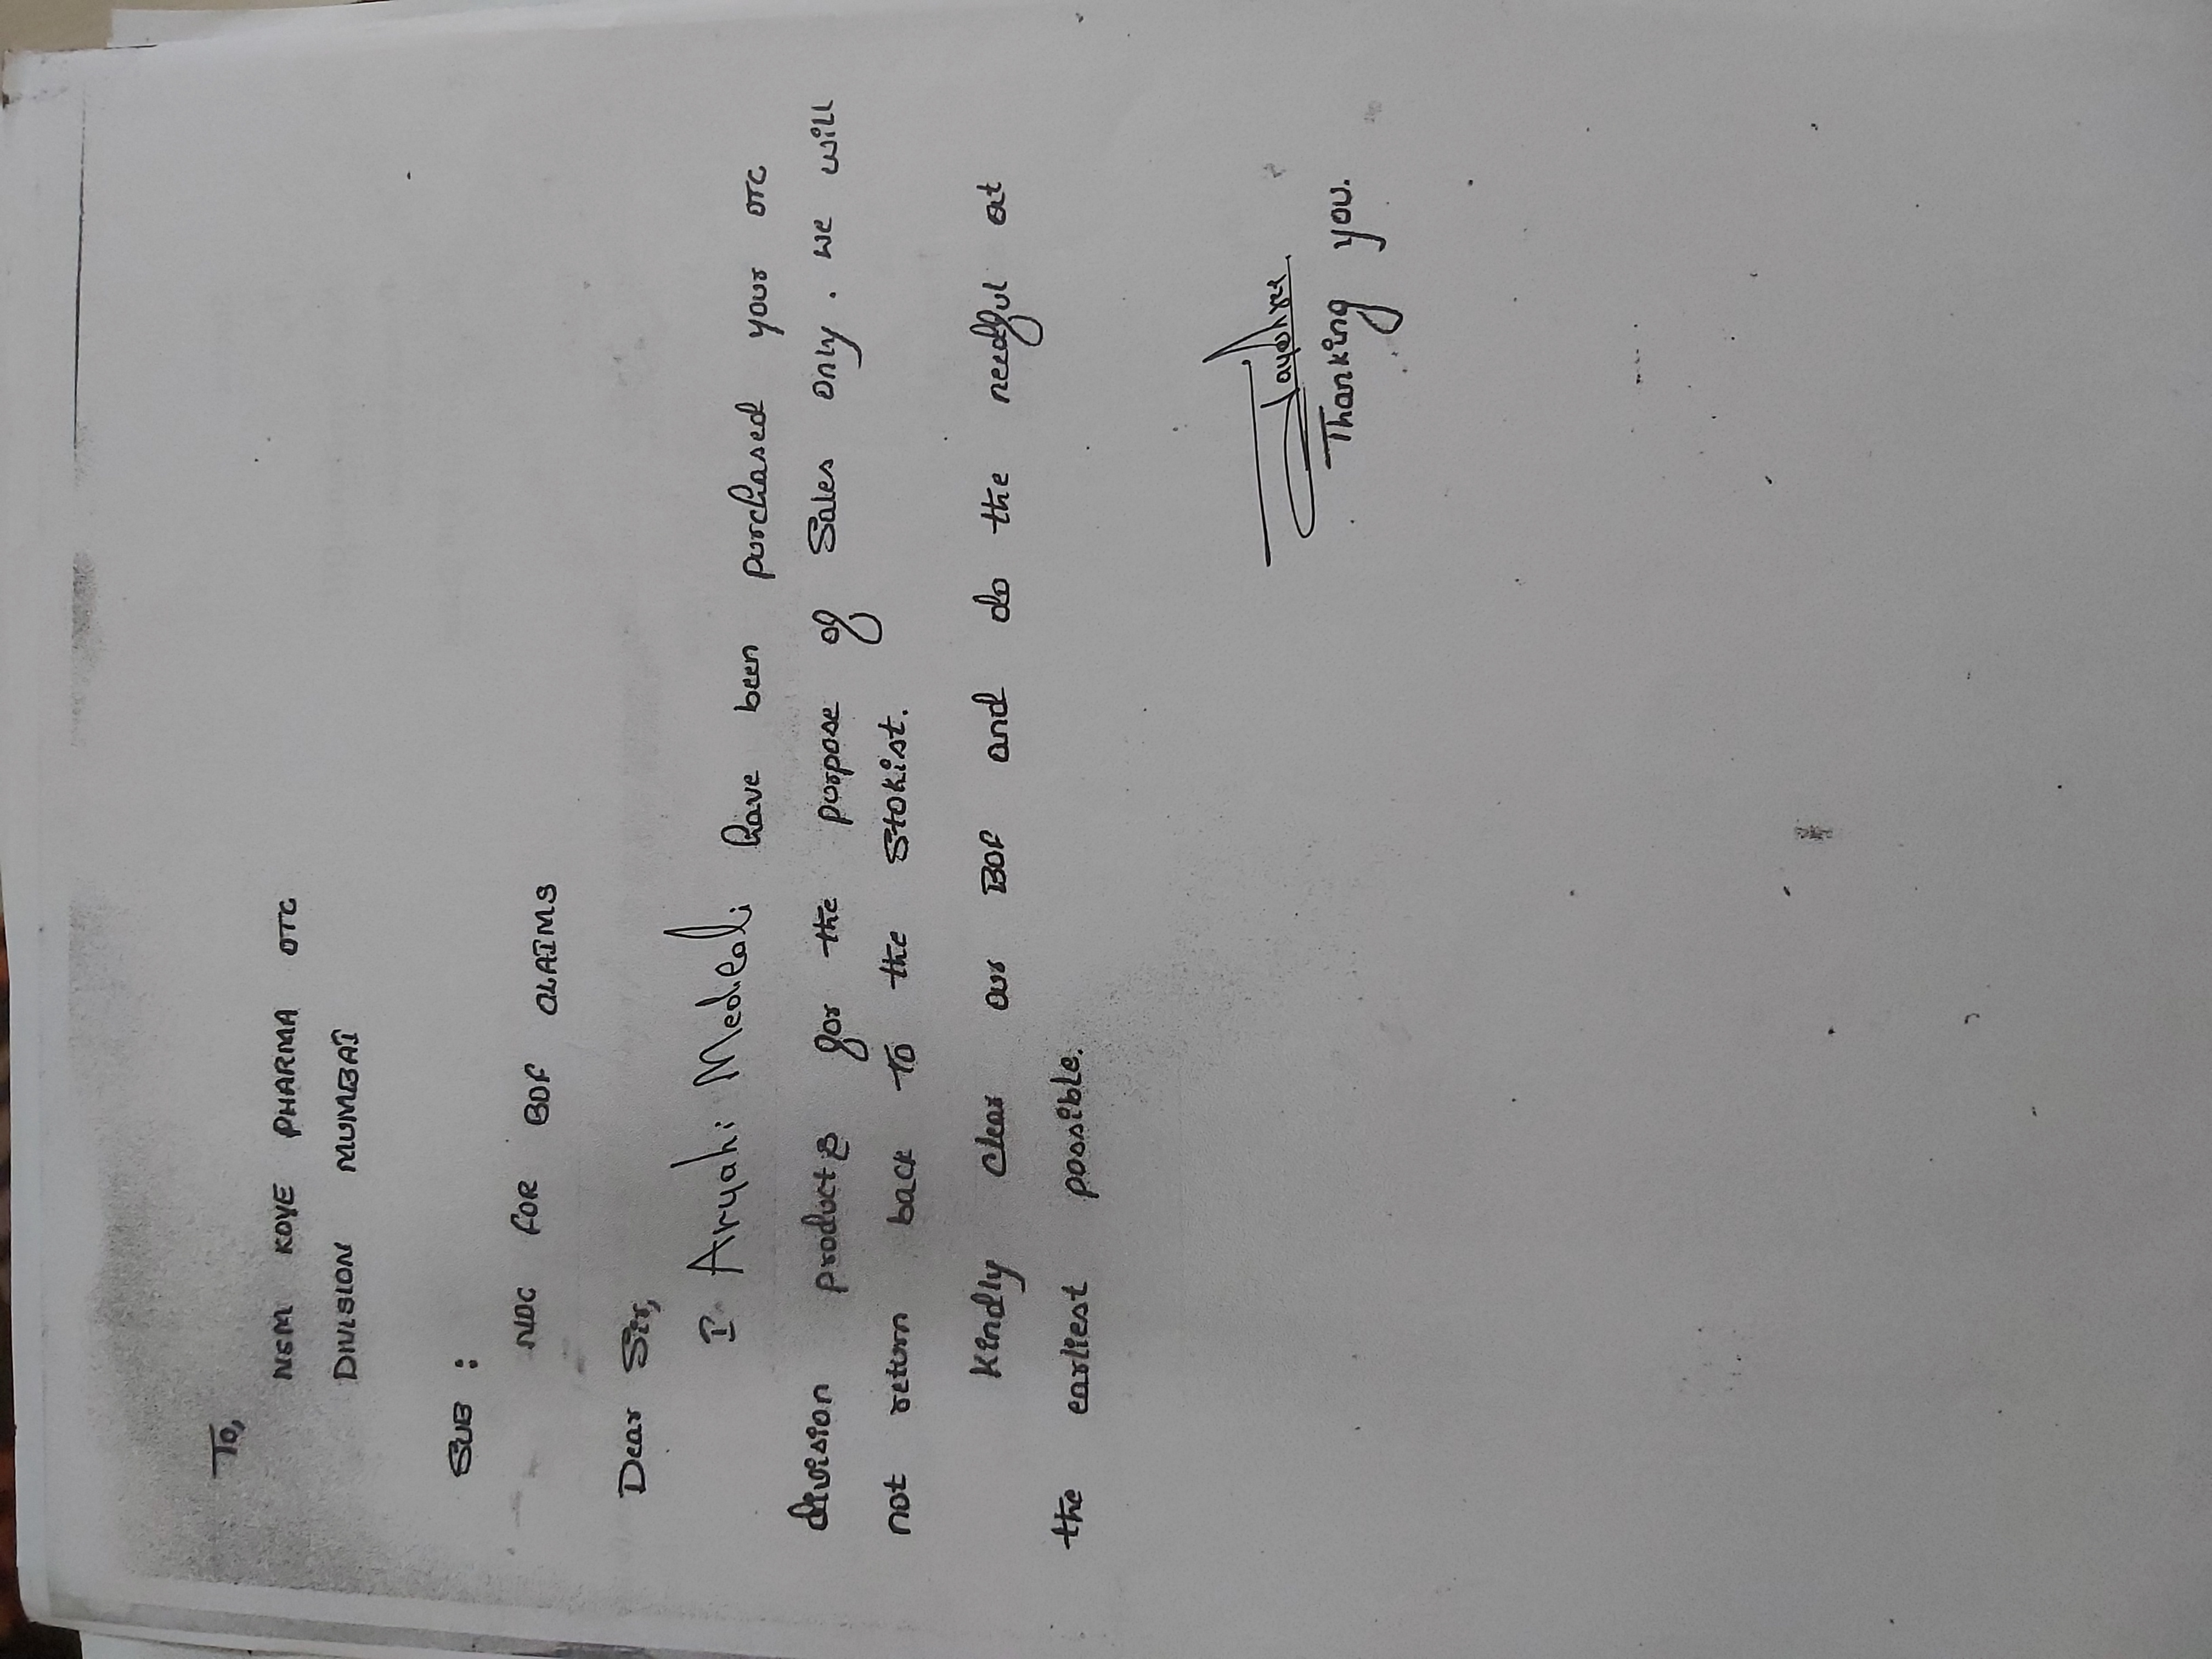 To,
NSM KOYE PHARMA OTC
DIVISION MUMBAI
SUB :
NDC FOR BDF CLAIMS
Dear Sir,
I. Aryahi Medical; have been purchased your OTC
division products for the purpose of Sales only. we will
not return back To the Stokist.
Kindly clear our BDF and do the needful at
the earliest possible.
Thanking you.